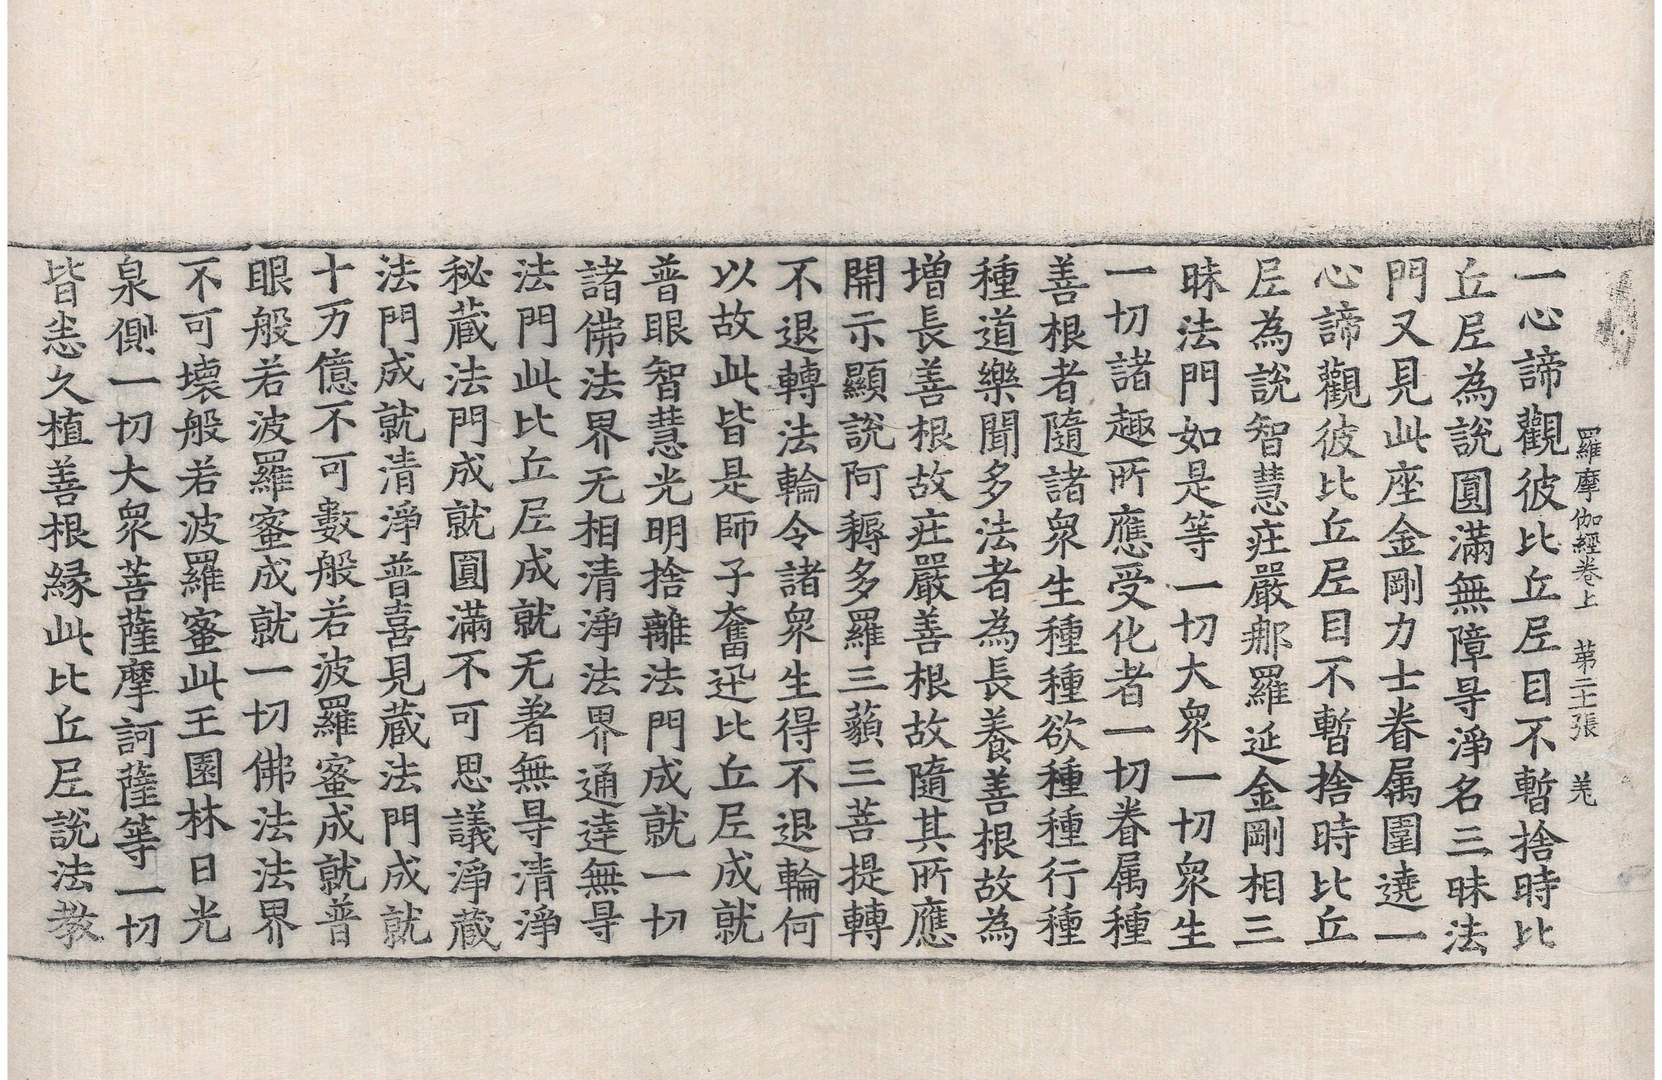 羅摩伽經卷上　第二十張　羌
一心諦觀彼比丘𡰱目不暫捨時比
丘𡰱為說圓滿無障㝵淨名三昧法
門又見此座金剛力士眷属圍遶一
心諦觀彼比丘𡰱目不暫捨時比丘
𡰱為說智慧庄嚴那羅延金剛相三
昧法門如是等一切大衆一切衆生
一切諸趣所應受化者一切眷属種
善根者隨諸衆生種種欲種種行種
種道樂聞多法者為長養善根故為
增長善根故庄嚴善根故隨其所應
開示顯說阿耨多羅三藐三菩提轉
不退轉法輪令諸衆生得不退輪何
以故此皆是師子奮迅比丘𡰱成就
普眼智慧光明捨離法門成就一切
諸佛法界无相清淨法界通達無㝵
法門此比丘𡰱成就无著無㝵清淨
秘藏法門成就圓滿不可思議淨藏
法門成就清淨普喜見藏法門成就
十万億不可數般若波羅蜜成就普
眼般若波羅蜜成就一切佛法法界
不可壞般若波羅蜜此王園林日光
泉側一切大衆菩薩摩訶薩等一切
皆悉久植善根緣此比丘𡰱說法教